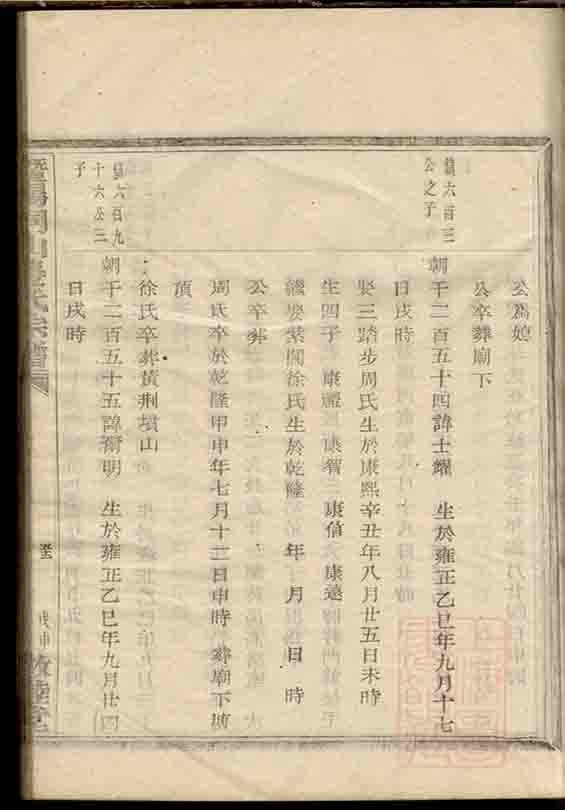 公爲媳
公卒葬廟下
鎮六百三
公之子
朝千二百五十四諱士耀 生於雍正乙巳年九月十七
日戌時
娶三踏步周氏生於康熙辛丑年八月廿五日未時
生四子 康 康 康倫 康遠
繼娶紫閬徐氏生於乾隆 年 月 日 時
公卒葬
周氏卒於乾隆甲申年七月十二日申時 葬廟下塘
頂
徐氏卒葬黃荆墳山
鎮六百九
十六公三
子
朝千二百五十五諱爾明 生於雍正乙巳年九月廿四
日戌時
暨陽 山 氏宗譜
戊申 敦睦堂